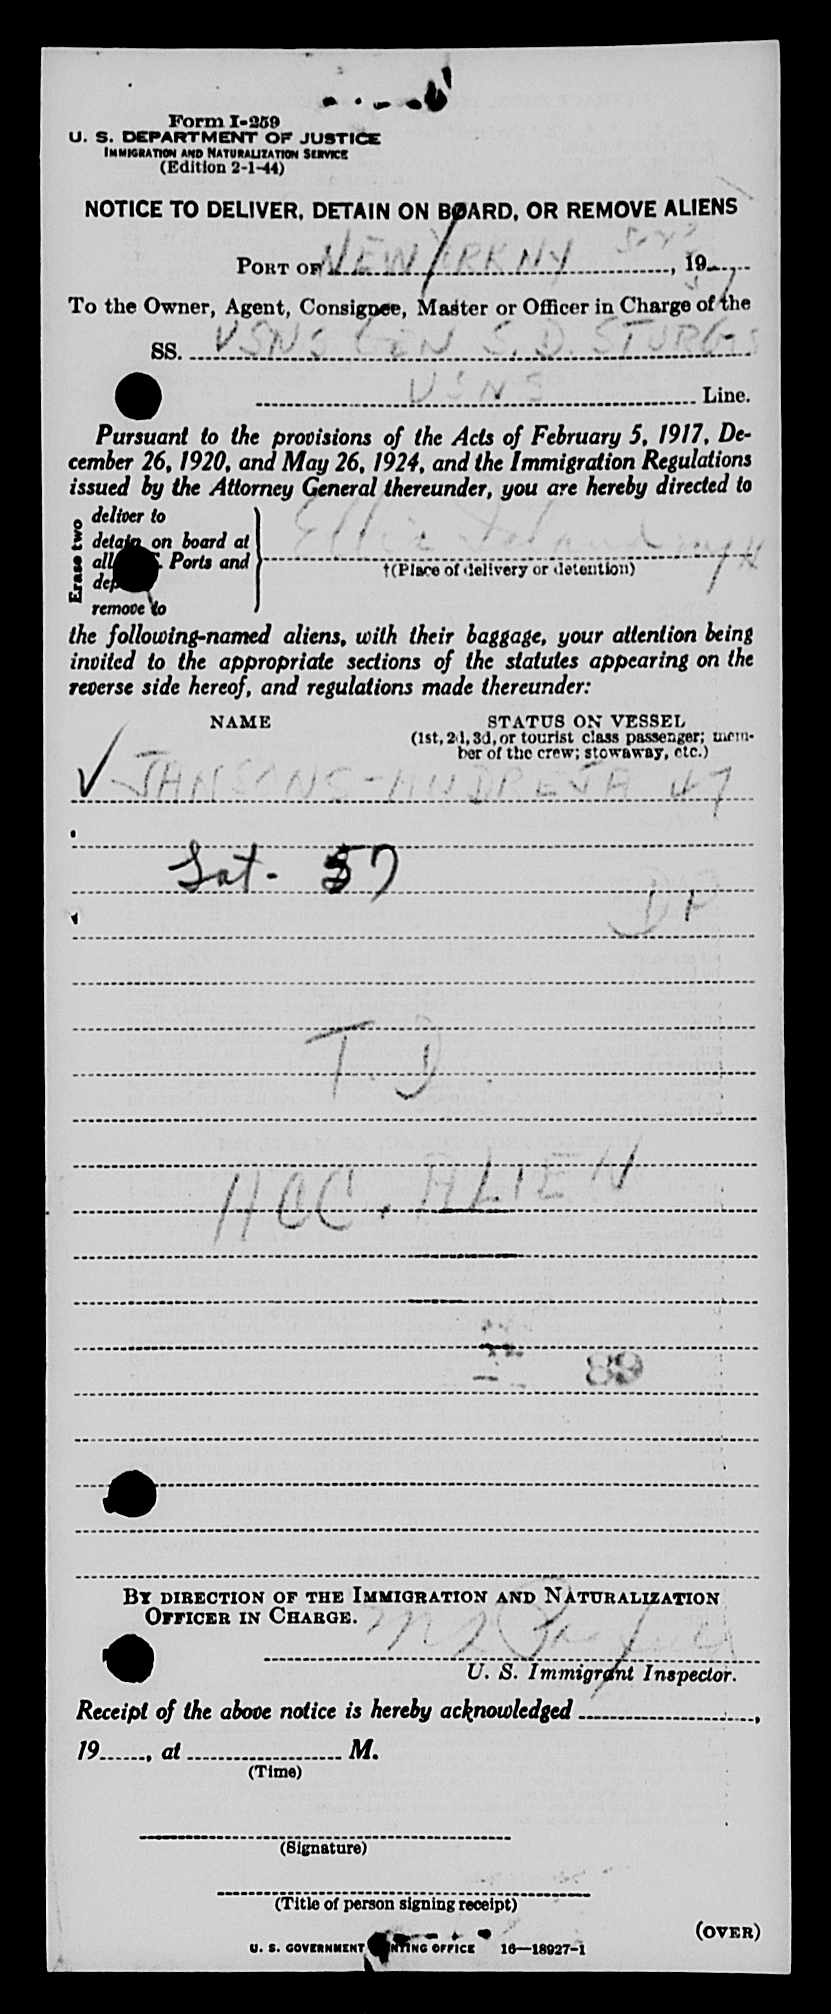 Form I-259
U. S. DEPARTMENT OF JUSTICE
IMMIGRATION AND NATURALIZATION SERVICE
(Edition 2-1-44)
NOTICE TO DELIVER, DETAIN ON BOARD, OR REMOVE ALIENS
PORT OF NEW YORK NY , 19
To the Owner, Agent, Consignee, Master or Officer in Charge of the
SS. USNS GEN S. D. STURGIS
USNS Line.
Pursuant to the provisions of the Acts of February 5, 1917, De-
cember 26, 1920, and May 26, 1924, and the Immigration Regulations
issued by the Attorney General thereunder, you are hereby directed to
Erase two
deliver to
detain on board at
all Ports and
remove to
Ellis Island
†(Place of delivery or detention)
the following-named aliens, with their baggage, your attention being
invited to the appropriate sections of the statutes appearing on the
reverse side hereof, and regulations made thereunder:
NAME STATUS ON VESSEL
(1st, 2d, 3d, or tourist class passenger; mem-
ber of the crew; stowaway, etc.)
✓ JANSONS - 47
Lat. 57
DP
T.D.
ACC. ALIEN
89
BY DIRECTION OF THE IMMIGRATION AND NATURALIZATION
OFFICER IN CHARGE.
U. S. Immigrant Inspector.
Receipt of the above notice is hereby acknowledged ,
19 , at M.
(Time)
(Signature)
(Title of person signing receipt)
(OVER)
U. S. GOVERNMENT PRINTING OFFICE 16—18927-1